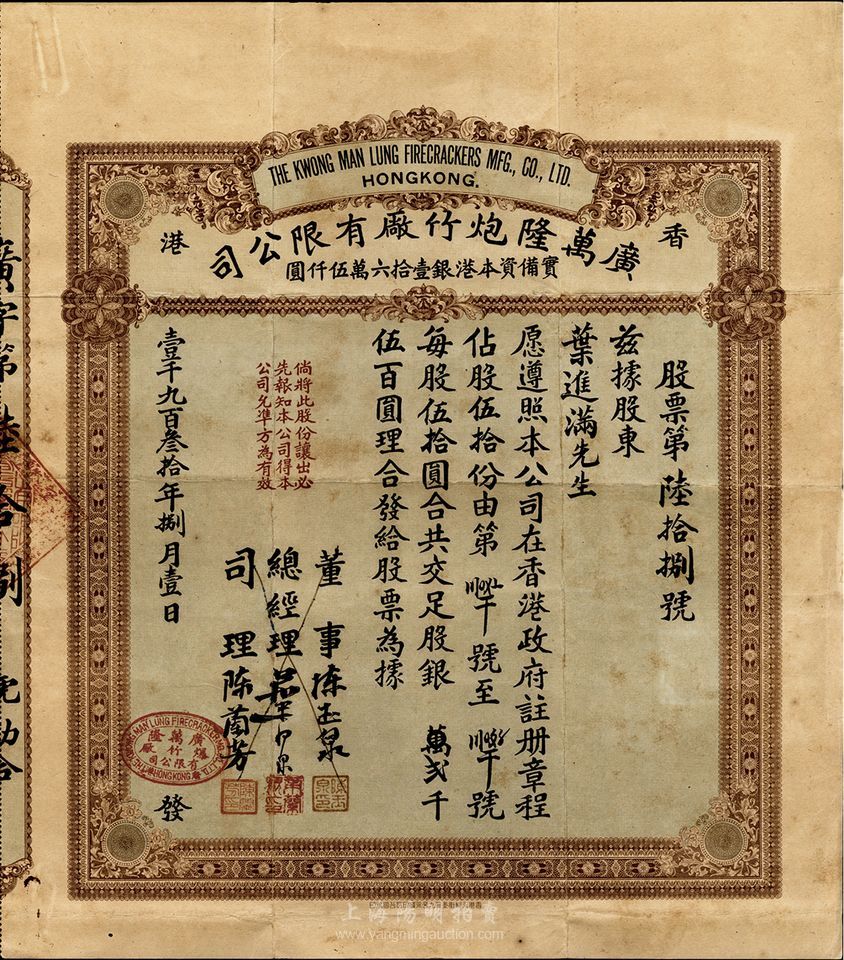 THE KWONG MAN LUNG FIRECRACKERS MFG., CO., LTD.
HONGKONG.
香港
廣萬隆炮竹廠有限公司
實備資本港銀壹拾六萬伍仟圓
股票第陸拾捌號
茲據股東
葉進滿先生
愿遵照本公司在香港政府註册章程
佔股伍拾份由第 號至 號
每股伍拾圓合共交足股銀 萬弍千
伍百圓理合發給股票為據
董事陈玉泉
總經理
司理陈蘭芳
倘將此股份讓出必
先報知本公司得本
公司允準方為有效
壹千九百叁拾年捌月壹日
發
THE KWONG MAN LUNG FIRECRACKERS MFG. CO. LTD.
HONGKONG
廣萬隆
爆竹廠
有限公司
廣字第陸拾捌號
上海陽明拍賣
www.yangmingauction.com